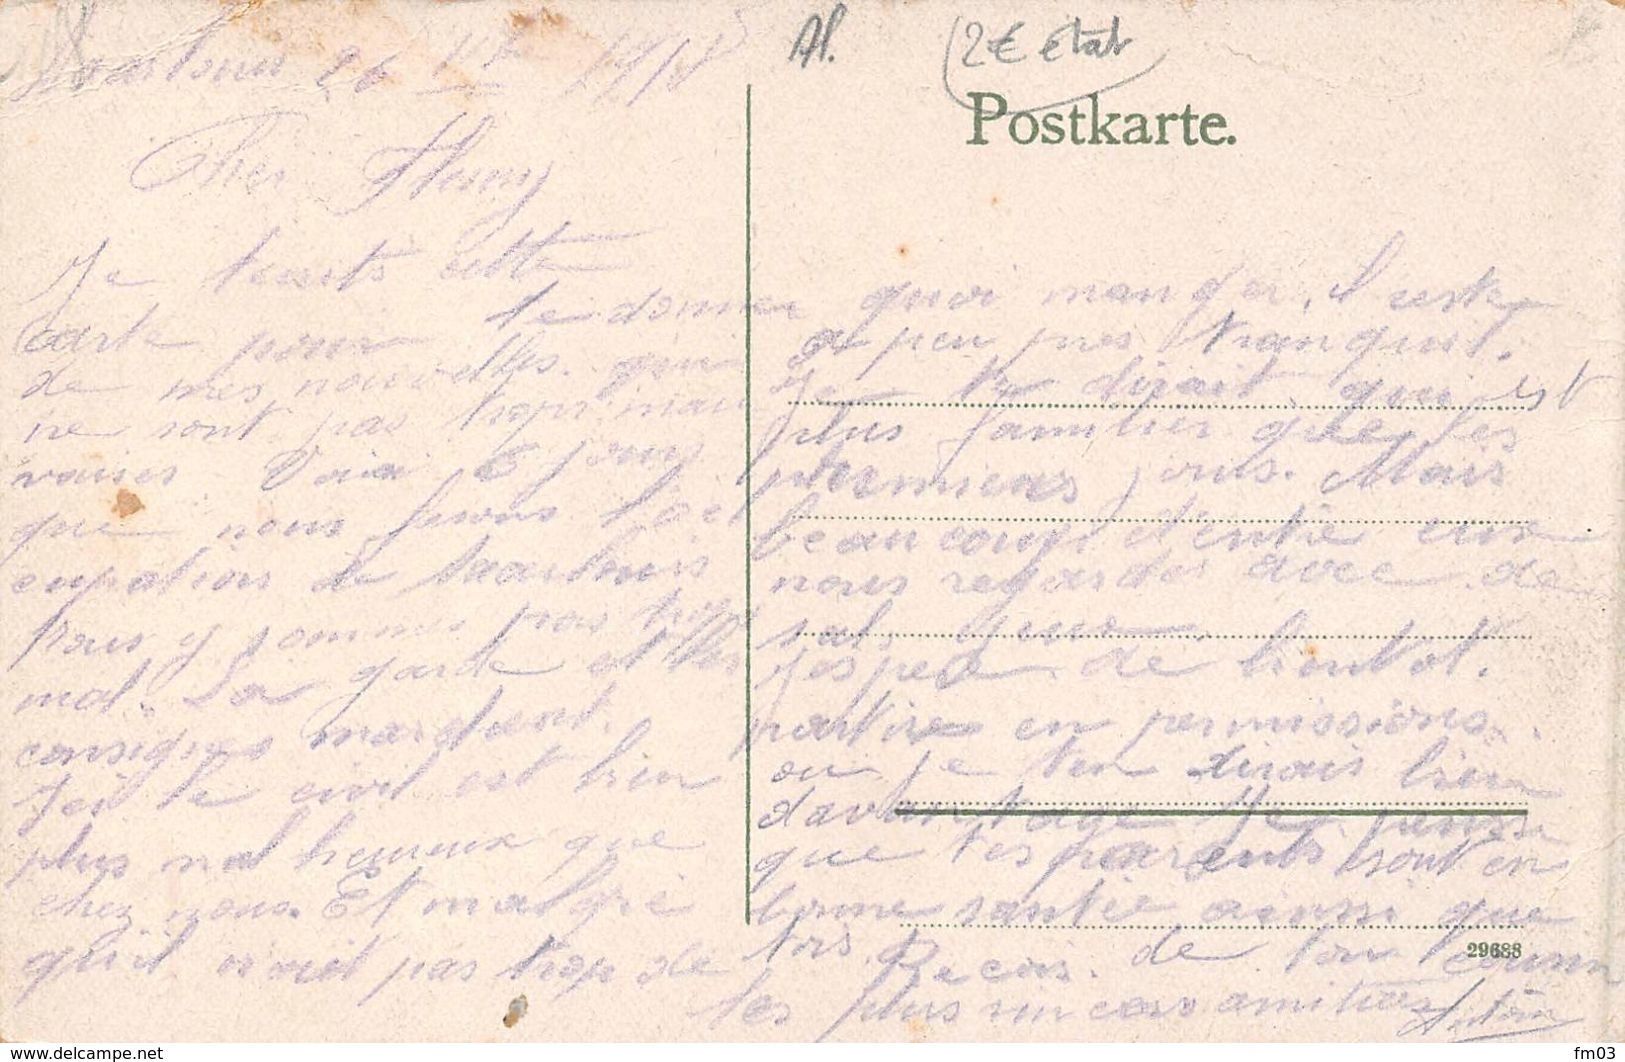 Al.
2€ état
Postkarte.
Cher
Je cette
Carte pour te donner
de mes nouvelles. qui
ne sont pas trop mau
vaises. Voici 6 jours
que nous l'oc
cupations de Saarlouis
Nous y sommes pas trop
mal. La garde et les
consignes marchent.
Ici le civil est bien
plus malheureux que
chez nous. Et malgré
qu'il n'ait pas trop de
quoi manger. il reste
a peu pres tranquil.
Je te dirait qui est
plus familier que les
premiers jours. Mais
beaucoup d'entre eux
nous regardes avec de
J'espere de bientot.
partire en permissions.
ou je t'en dirais bien
davantage Je pense
que tes parents sont en
bonne santée ainsi que
toi. Recois. de ton cousin
les plus sinceres amitiées
29688
delcampe.net
fm03